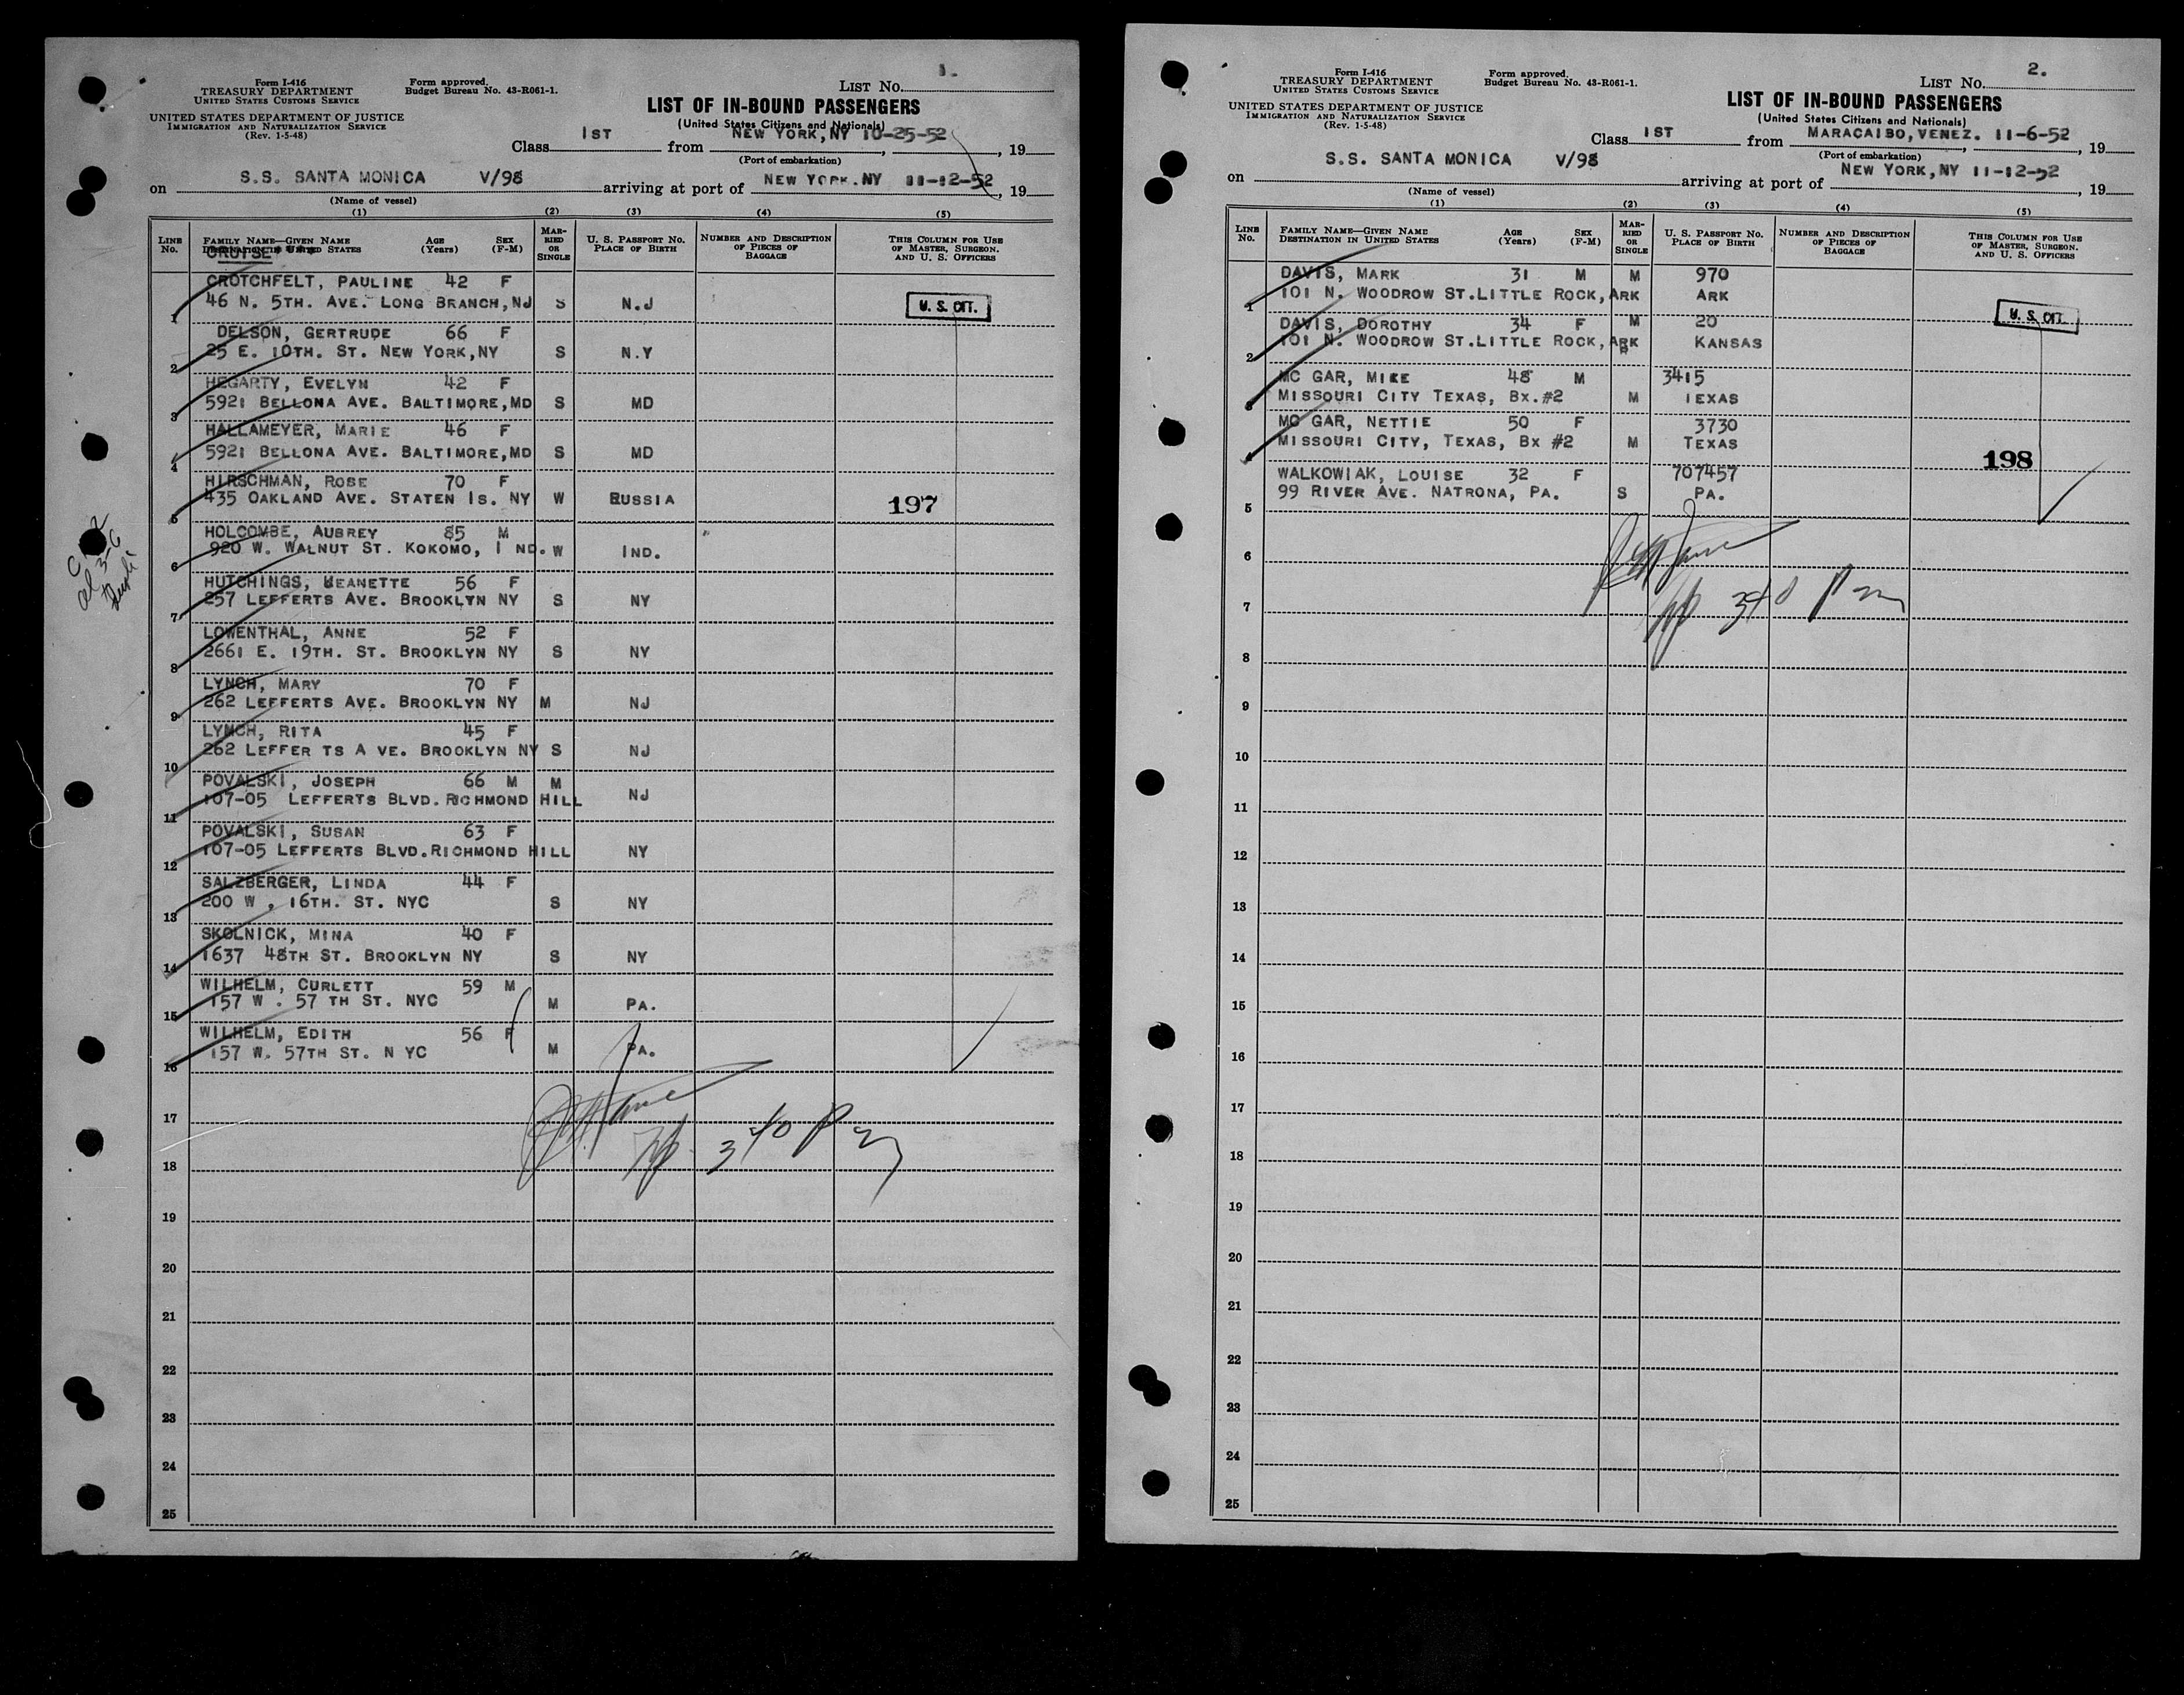 Form I-416
TREASURY DEPARTMENT
UNITED STATES CUSTOMS SERVICE
UNITED STATES DEPARTMENT OF JUSTICE
IMMIGRATION AND NATURALIZATION SERVICE
(Rev. 1-5-48)
Form approved.
Budget Bureau No. 43-R061-1.
LIST No. 1.
LIST OF IN-BOUND PASSENGERS
(United States Citizens and Nationals)
Class 1ST from NEW YORK, NY 10-25-52, 19
(Port of embarkation)
on S.S. SANTA MONICA V/98 arriving at port of NEW YORK.NY 11-12-52, 19
(Name of vessel)
(1) (2) (3) (4) (5)
LINE No. FAMILY NAME—GIVEN NAME DESTINATION IN UNITED STATES AGE (Years) SEX (F-M) MARRIED OR SINGLE U. S. PASSPORT NO. PLACE OF BIRTH NUMBER AND DESCRIPTION OF PIECES OF BAGGAGE THIS COLUMN FOR USE OF MASTER, SURGEON, AND U. S. OFFICERS
CRUISE
CROTCHFELT, PAULINE 42 F
1 46 N. 5TH. AVE. LONG BRANCH, NJ S N.J U. S. CIT.
DELSON, GERTRUDE 66 F
2 25 E. 10TH. ST. NEW YORK, NY S N.Y
HEGARTY, EVELYN 42 F
3 5921 BELLONA AVE. BALTIMORE, MD S MD
HALLAMEYER, MARIE 46 F
4 5921 BELLONA AVE. BALTIMORE, MD S MD
HIRSCHMAN, ROSE 70 F
5 435 OAKLAND AVE. STATEN IS. NY W RUSSIA 197
HOLCOMBE, AUBREY 85 M
6 920 W. WALNUT ST. KOKOMO, IND. W IND.
HUTCHINGS, JEANETTE 56 F
7 257 LEFFERTS AVE. BROOKLYN NY S NY
LOWENTHAL, ANNE 52 F
8 2661 E. 19TH. ST. BROOKLYN NY S NY
LYNCH, MARY 70 F
9 262 LEFFERTS AVE. BROOKLYN NY M NJ
LYNCH, RITA 45 F
10 262 LEFFER TS A VE. BROOKLYN NY S NJ
POVALSKI, JOSEPH 66 M M
11 107-05 LEFFERTS BLVD. RICHMOND HILL NJ
POVALSKI, SUSAN 63 F
12 107-05 LEFFERTS BLVD. RICHMOND HILL NY
SALZBERGER, LINDA 44 F
13 200 W . 16TH. ST. NYC S NY
SKOLNICK, MINA 40 F
14 1637 48TH ST. BROOKLYN NY S NY
WILHELM, CURLETT 59 M
15 157 W . 57 TH ST. NYC M PA.
WILHELM, EDITH 56 F
16 157 W. 57TH ST. N YC M PA.
17
340 PM
18
19
20
21
22
23
24
25
Form I-416
TREASURY DEPARTMENT
UNITED STATES CUSTOMS SERVICE
UNITED STATES DEPARTMENT OF JUSTICE
IMMIGRATION AND NATURALIZATION SERVICE
(Rev. 1-5-48)
Form approved.
Budget Bureau No. 43-R061-1.
LIST No. 2.
LIST OF IN-BOUND PASSENGERS
(United States Citizens and Nationals)
Class 1ST from MARACAIBO, VENEZ. 11-6-52, 19
(Port of embarkation)
on S.S. SANTA MONICA V/98 arriving at port of NEW YORK, NY 11-12-52, 19
(Name of vessel)
(1) (2) (3) (4) (5)
LINE No. FAMILY NAME—GIVEN NAME DESTINATION IN UNITED STATES AGE (Years) SEX (F-M) MARRIED OR SINGLE U. S. PASSPORT NO. PLACE OF BIRTH NUMBER AND DESCRIPTION OF PIECES OF BAGGAGE THIS COLUMN FOR USE OF MASTER, SURGEON, AND U. S. OFFICERS
DAVIS, MARK 31 M M 970
1 101 N. WOODROW ST. LITTLE ROCK, ARK ARK U. S. CIT.
DAVIS, DOROTHY 34 F M 20
2 101 N. WOODROW ST. LITTLE ROCK, ARK KANSAS
MC GAR, MIKE 48 M 3415
3 MISSOURI CITY TEXAS, BX. #2 M TEXAS
MC GAR, NETTIE 50 F 3730
4 MISSOURI CITY, TEXAS, BX #2 M TEXAS
198
WALKOWIAK, LOUISE 32 F 707457
5 99 RIVER AVE. NATRONA, PA. S PA.
6
7 340 PM
8
9
10
11
12
13
14
15
16
17
18
19
20
21
22
23
24
25